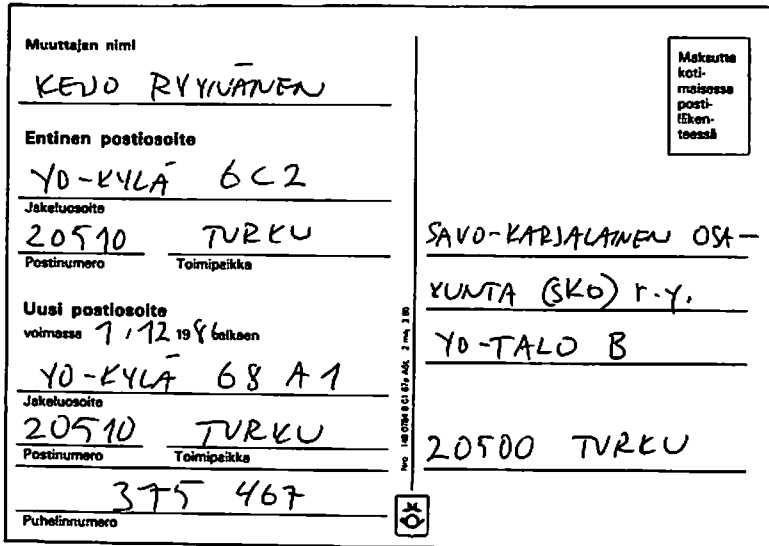 Muuttajan nimi
KEIJO RYYNÄNEN
Entinen postiosoite
YO-KYLÄ 6C2
Jakeluosoite
20510 TURKU
Postinumero Toimipaikka
Uusi postiosoite
voimassa 1/12 1986 alkaen
YO-KYLÄ 68 A 1
Jakeluosoite
20510 TURKU
Postinumero Toimipaikka
375 467
Puhelinnumero
Maksutta
koti-
maisessa
posti-
liiken-
teessä
SAVO-KARJALAINEN OSA-
KUNTA (SKO) r.y.
YO-TALO B
20500 TURKU